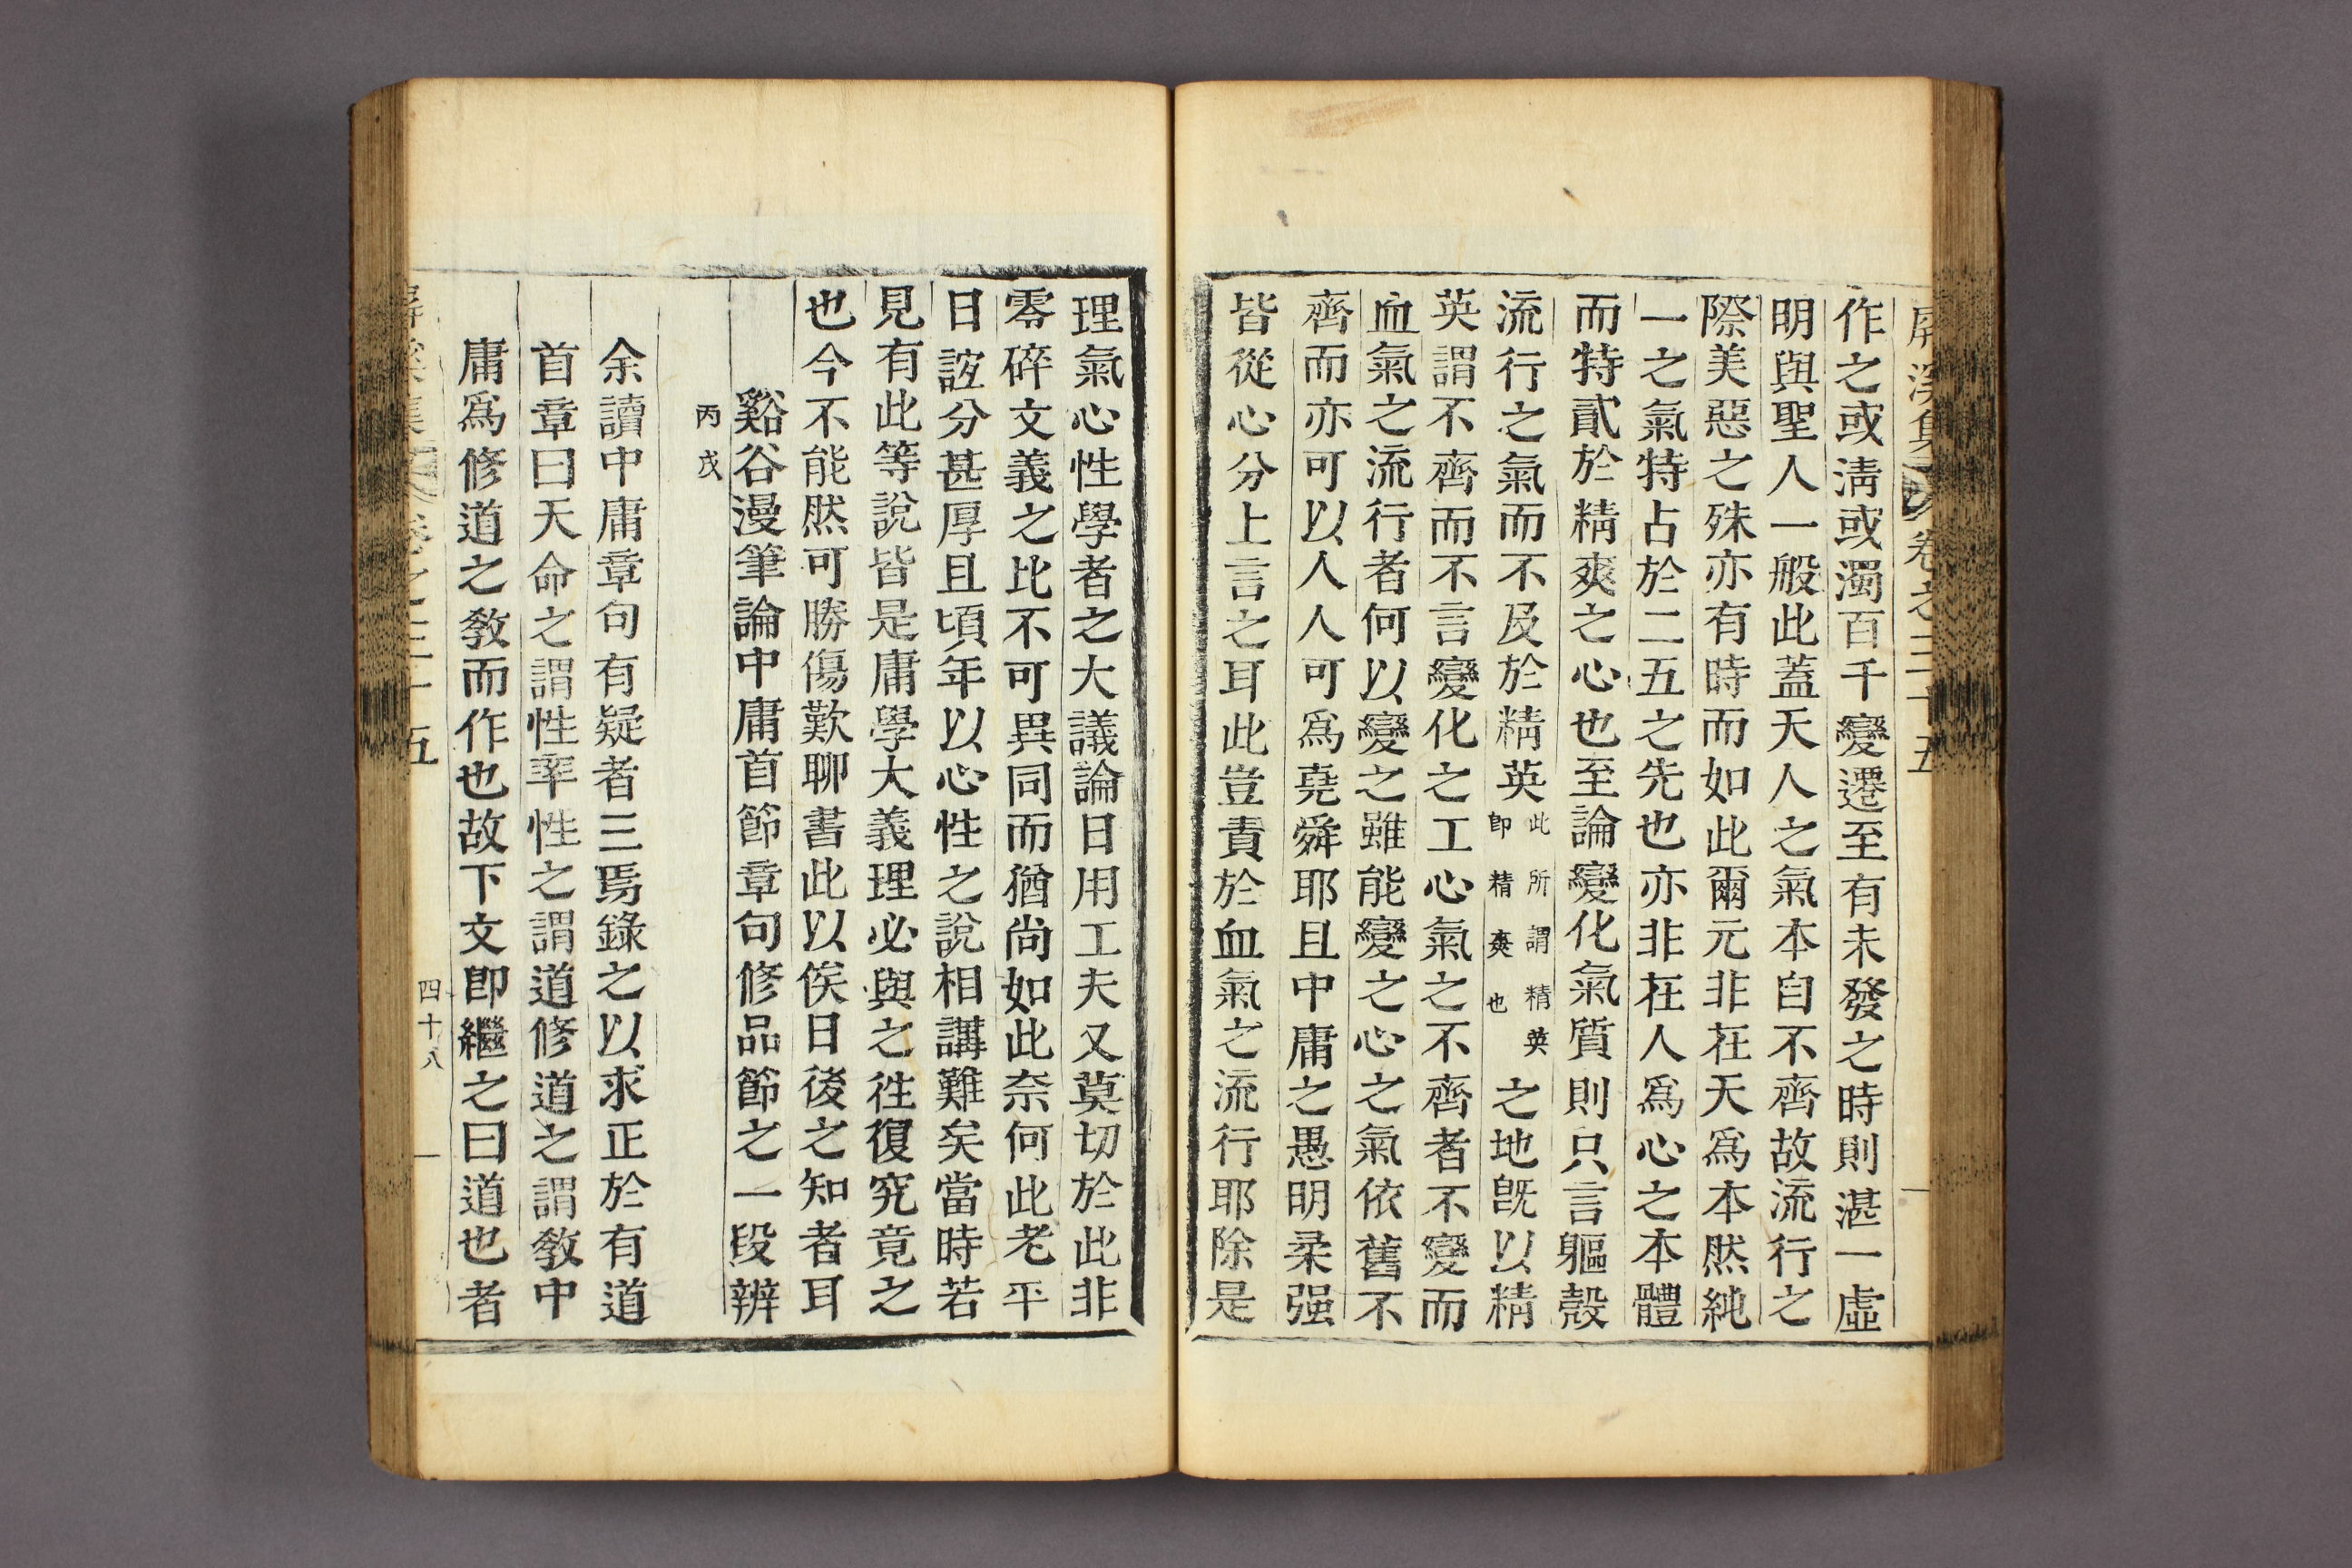 屏溪集 卷之三十五
作之或淸或濁百千變遷至有未發之時則湛一虛
明與聖人一般此蓋天人之氣本自不齊故流行之
際美惡之殊亦有時而如此爾元非在天爲本然純
一之氣特占於二五之先也亦非在人爲心之本體
而特貳於精爽之心也至論變化氣質則只言軀殼
流行之氣而不及於精英此所謂精英卽精爽也之地旣以精
英謂不齊而不言變化之工心氣之不齊者不變而
血氣之流行者何以變之雖能變之心之氣依舊不
齊而亦可以人人可爲堯舜耶且中庸之愚明柔强
皆從心分上言之耳此豈責於血氣之流行耶除是
理氣心性學者之大議論日用工夫又莫切於此非
零碎文義之比不可異同而猶尙如此奈何此老平
日誼分甚厚且頃年以心性之說相講難矣當時若
見有此等說皆是庸學大義理必與之往復究竟之
也今不能然可勝傷歎聊書此以俟日後之知者耳
谿谷漫筆論中庸首節章句修品節之一段辨
丙戌
余讀中庸章句有疑者三焉錄之以求正於有道
首章曰天命之謂性率性之謂道修道之謂敎中
庸爲修道之敎而作也故下文卽繼之曰道也者
屏溪集 卷之三十五
四十八